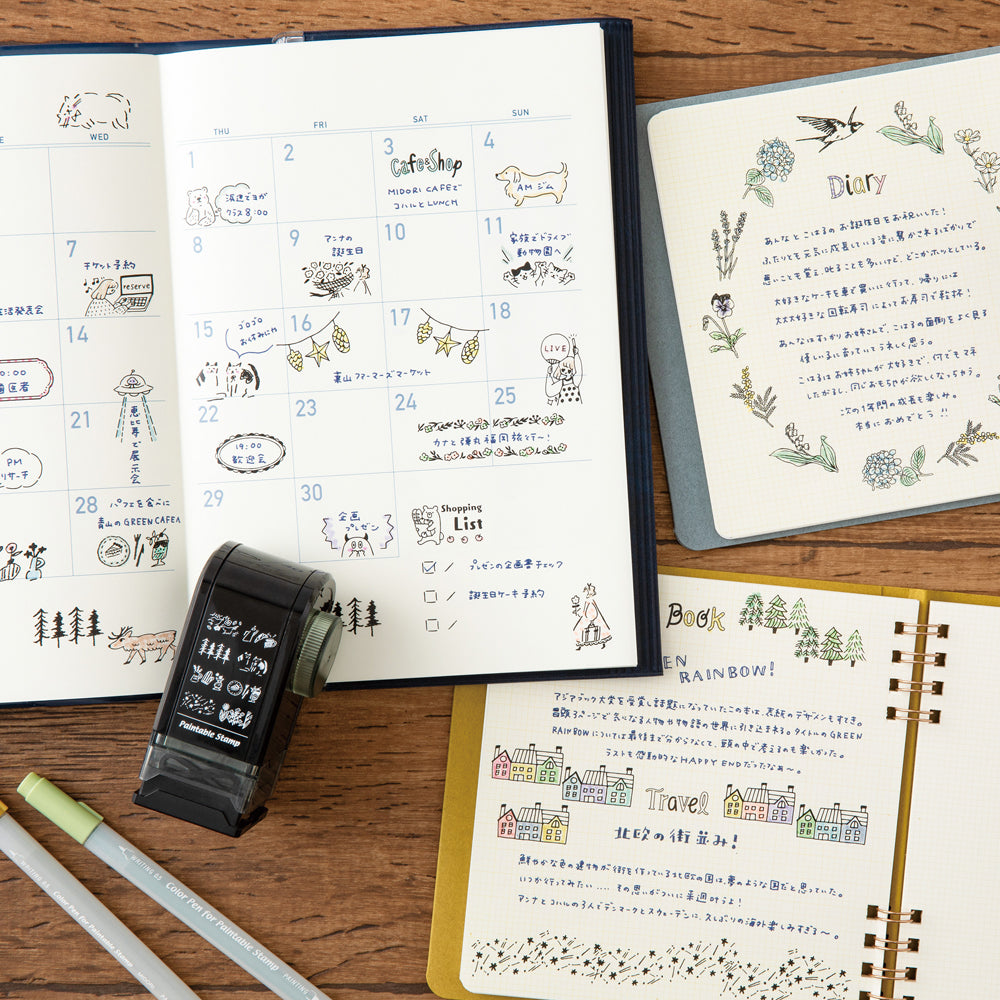 WED
THU
FRI
SAT
SUN
1
2
3
4
Cafe & Shop
MIDORI CAFEで
コハルとLUNCH
AM ジム
浜辺でヨガ
クラス 8:00
7
チケット予約
reserve
8
9
アンナの
誕生日
10
11
家族でドライブ
動物園へ
生活発表会
14
15
ゴロゴロ
お休みにゃ
16
17
18
LIVE
東山ファーマーズマーケット
0:00
歯医者
21
恵比寿で展示会
22
19:00
歓迎会
23
24
25
カナと弾丸福岡旅行〜!
PM
リサーチ
28
パフェを食べに
青山のGREEN CAFEへ
29
30
企画
プレゼン
Shopping
List
プレゼンの企画書チェック
誕生日ケーキ予約
Paintable Stamp
WRITING 0.5 Color Pen for Paintable Stamp
WRITING 0.5 Color Pen for Paintable Stamp PAINTING
Diary
あんなとこはるのお誕生日をお祝いした!
ふたりとも元気に成長している姿に驚かされるばかりで
悪いことも覚え、叱ることも多いけど、どこかホッとしている。
大好きなケーキを車で買いに行って、帰りには
大大大好きな回転寿司によってお寿司で乾杯!
あんなはすっかりお姉さんで、こはるの面倒をよく見る
優しい子に育っていてうれしく思う。
こはるはお姉ちゃんが大好きで、何でもマネ
したがるし、同じおもちゃが欲しくなっちゃう。
次の1年間の成長も楽しみ。
本当におめでとう!!
Book
EN
RAINBOW!
アジアブック大賞を受賞し話題になっていたこの本は、表紙のデザインもすてき。
冒頭3ページで気になる人物や物語の世界に引き込まれる。タイトルのGREEN
RAINBOWについては最後まで分からなくて、頭の中で考えるのも楽しかった。
ラストも感動的なHAPPY ENDだったなぁ〜。
Travel
北欧の街並み!
鮮やかな色の建物が街を作っている北欧の国は、夢のような国だと思っていた。
いつか行ってみたい.... その思いがついに来週叶うよ!
アンナとコハルの3人でデンマークとスウェーデンに、久しぶりの海外楽しみすぎる〜。